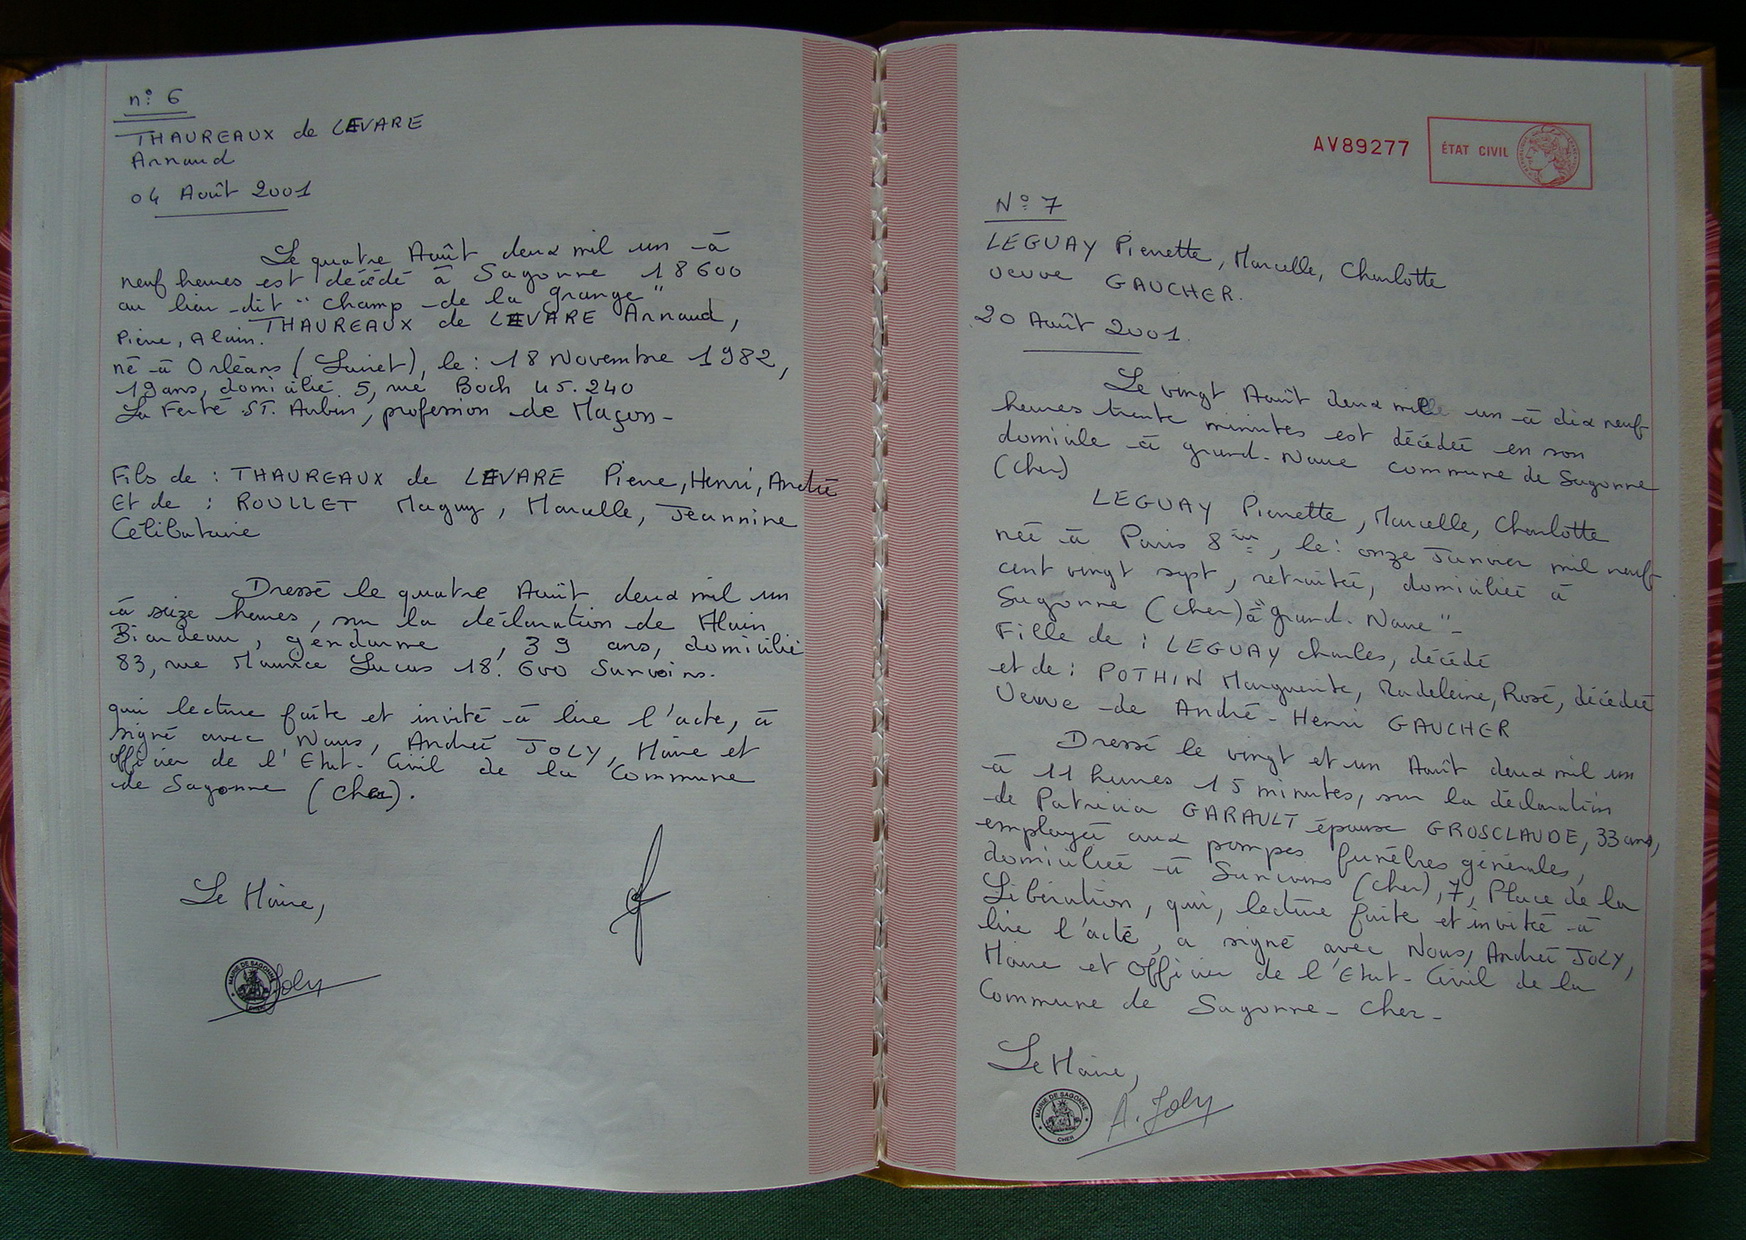 n° 6
THAUREAUX de LEVARE
Arnaud
04 Août 2001
Le quatre Août deux mil un à
neuf heures est décédé à Sagonne 18600
au lieu-dit "Champ de la grange"
THAUREAUX de LEVARE Arnaud,
Pierre, Alain.
né à Orléans (Loiret), le : 18 Novembre 1982,
19 ans, domicilié 5, rue Boch 45.240
La Ferté ST. Aubin, profession de Maçon-
Fils de : THAUREAUX de LEVARE Pierre, Henri, André
Et de : ROULLET Maguy, Marcelle, Jeannine
Célibataire
Dressé le quatre Août deux mil un
à seize heures, sur la déclaration de Alain
gendarme, 39 ans, domicilié
83, rue Maurice Lucas 18.600 Sancoins.
qui lecture faite et invité à lire l'acte, à
signé avec Nous, Andrée JOLY, Maire et
officier de l'Etat-Civil de la Commune
de Sagonne (Cher).
Le Maire,
MAIRIE DE SAGONNE
CHER
Joly
AV89277
ÉTAT CIVIL
N° 7
LEGUAY Pierrette, Marcelle, Charlotte
veuve GAUCHER.
20 Août 2001.
Le vingt Août deux mil un à dix neuf
heures trente minutes est décédée en son
domicile à grand-Naue commune de Sagonne
(Cher)
LEGUAY Pierrette, Marcelle, Charlotte
née à Paris 8ème, le : onze Janvier mil neuf
cent vingt sept, retraitée, domiciliée à
Sagonne (Cher) à "grand-Naue"-
Fille de : LEGUAY Charles, décédé
et de : POTHIN Marguerite, Madeleine, Rose, décédée
Veuve de André-Henri GAUCHER
Dressé le vingt et un Août deux mil un
à 11 heures 15 minutes, sur la déclaration
de Patricia GARAULT épouse GROSCLAUDE, 33 ans,
employée aux pompes funèbres générales,
domiciliée à Sancoins (Cher), 7, Place de la
Libération, qui, lecture faite et invitée à
lire l'acte, a signé avec Nous, Andrée JOLY,
Maire et Officier de l'Etat-Civil de la
Commune de Sagonne - Cher -
Le Maire,
MAIRIE DE SAGONNE
CHER
A. Joly